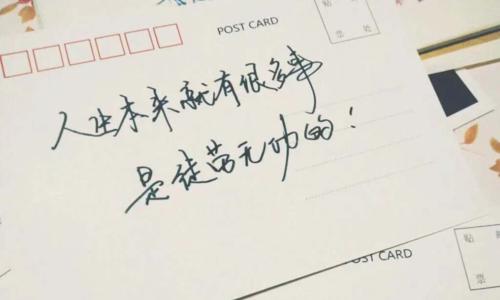 POST CARD
贴
票 处
人生本来就有很多事
是徒劳无功的！
贴
票
OST CARD